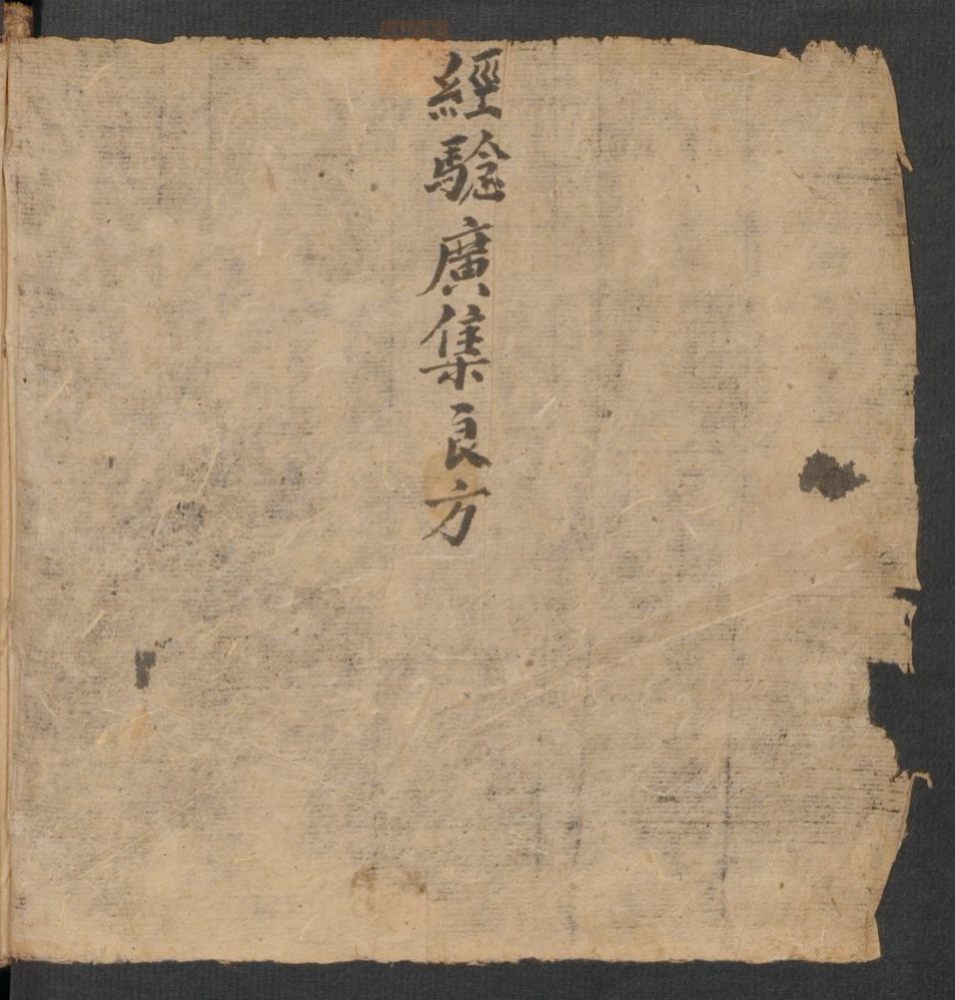 經驗廣集良方